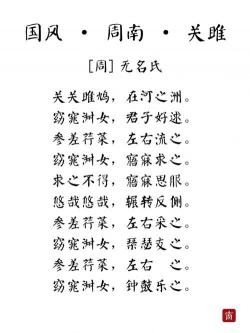 国风 · 周南 · 关雎
[周] 无名氏
关关雎鸠，在河之洲。
窈窕淑女，君子好逑。
参差荇菜，左右流之。
窈窕淑女，寤寐求之。
求之不得，寤寐思服。
悠哉悠哉，辗转反侧。
参差荇菜，左右采之。
窈窕淑女，琴瑟友之。
参差荇菜，左右 之。
窈窕淑女，钟鼓乐之。